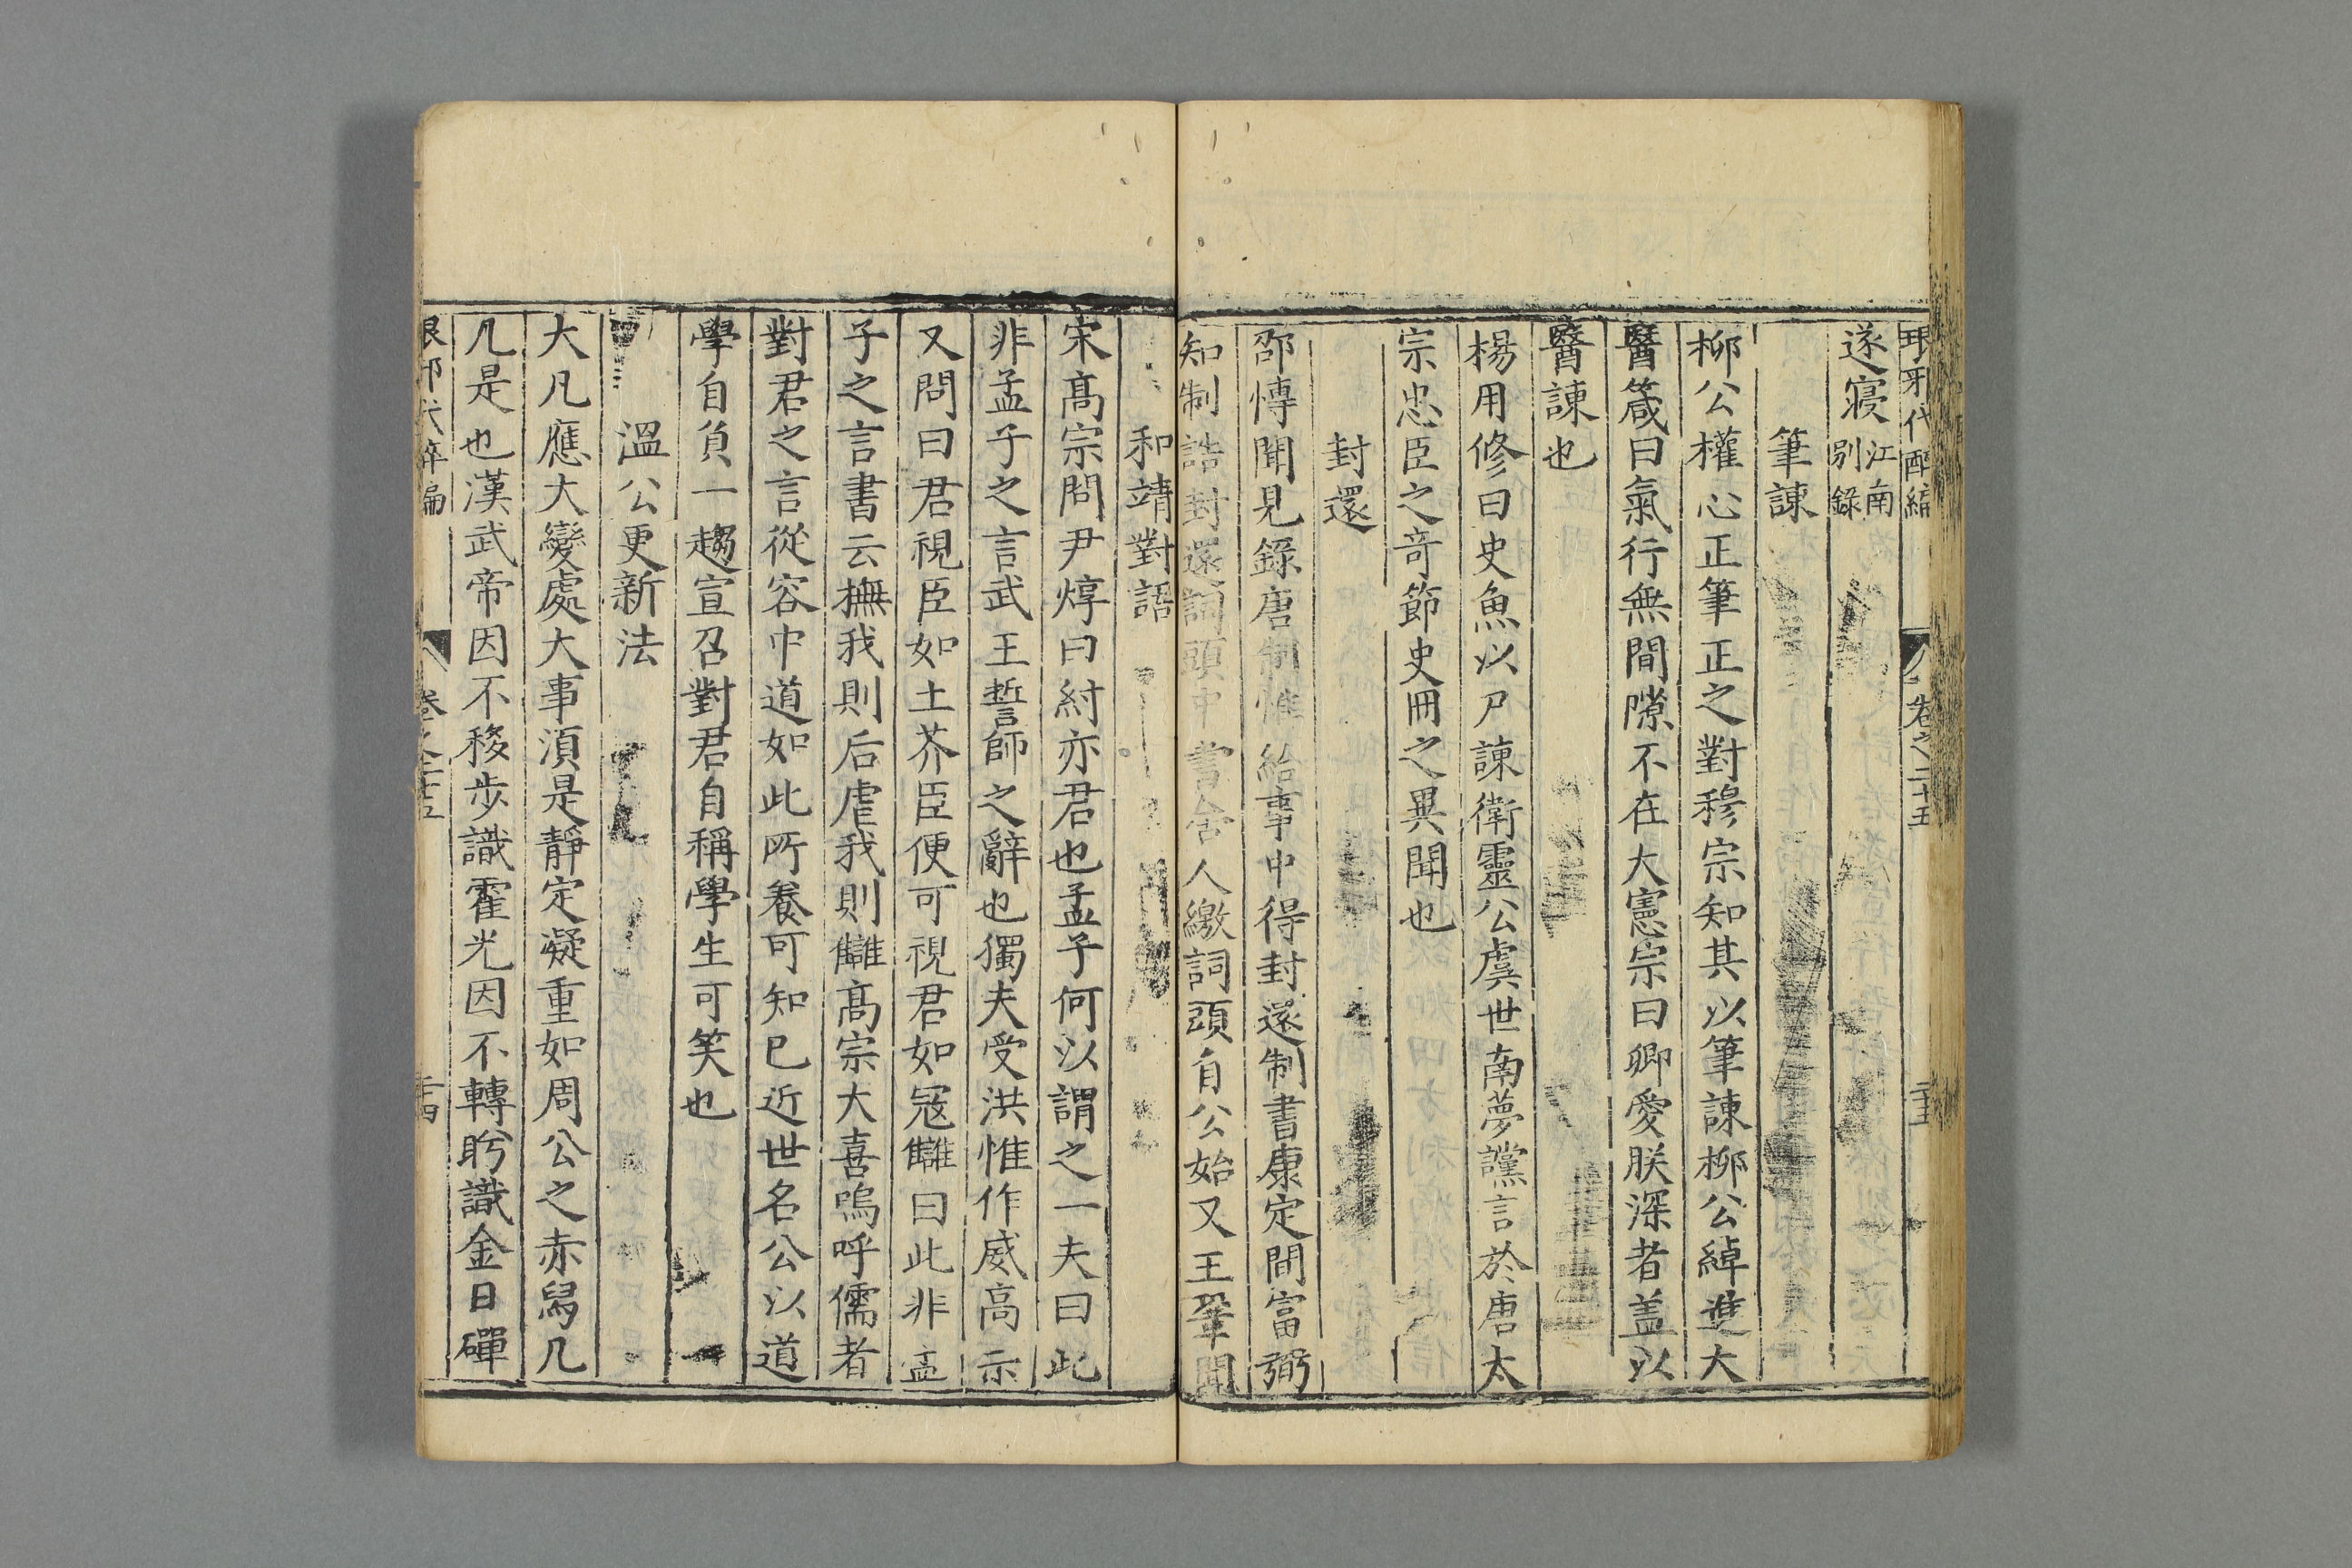 琅邪代醉編 卷之二十五
遂寢江南別錄
筆諫
柳公權心正筆正之對穆宗知其以筆諫柳公綽進大
醫箴曰氣行無間隙不在大憲宗曰卿愛朕深者盖以
醫諫也
楊用修曰史魚以尸諫衛靈公虞世南夢讜言於唐太
宗忠臣之竒節史冊之異聞也
封還
邵愽聞見錄唐制惟給事中得封還制書康定間富弼
知制誥封還詞頭中書舍人繳詞頭自公始又王鞏聞
和靖對語
宋髙宗問尹焞曰紂亦君也孟子何以謂之一夫曰此
非孟子之言武王誓師之辭也獨夫受洪惟作威高示
又問曰君視臣如土芥臣便可視君如寇讎曰此非孟
子之言書云撫我則后虐我則讎髙宗大喜嗚呼儒者
對君之言從容中道如此所養可知已近世名公以道
學自負一趨宣召對君自稱學生可笑也
溫公更新法
大凡應大變處大事湏是靜定凝重如周公之赤舄几
几是也漢武帝因不移步識霍光因不轉盻識金日磾
卷之二十五 二十四